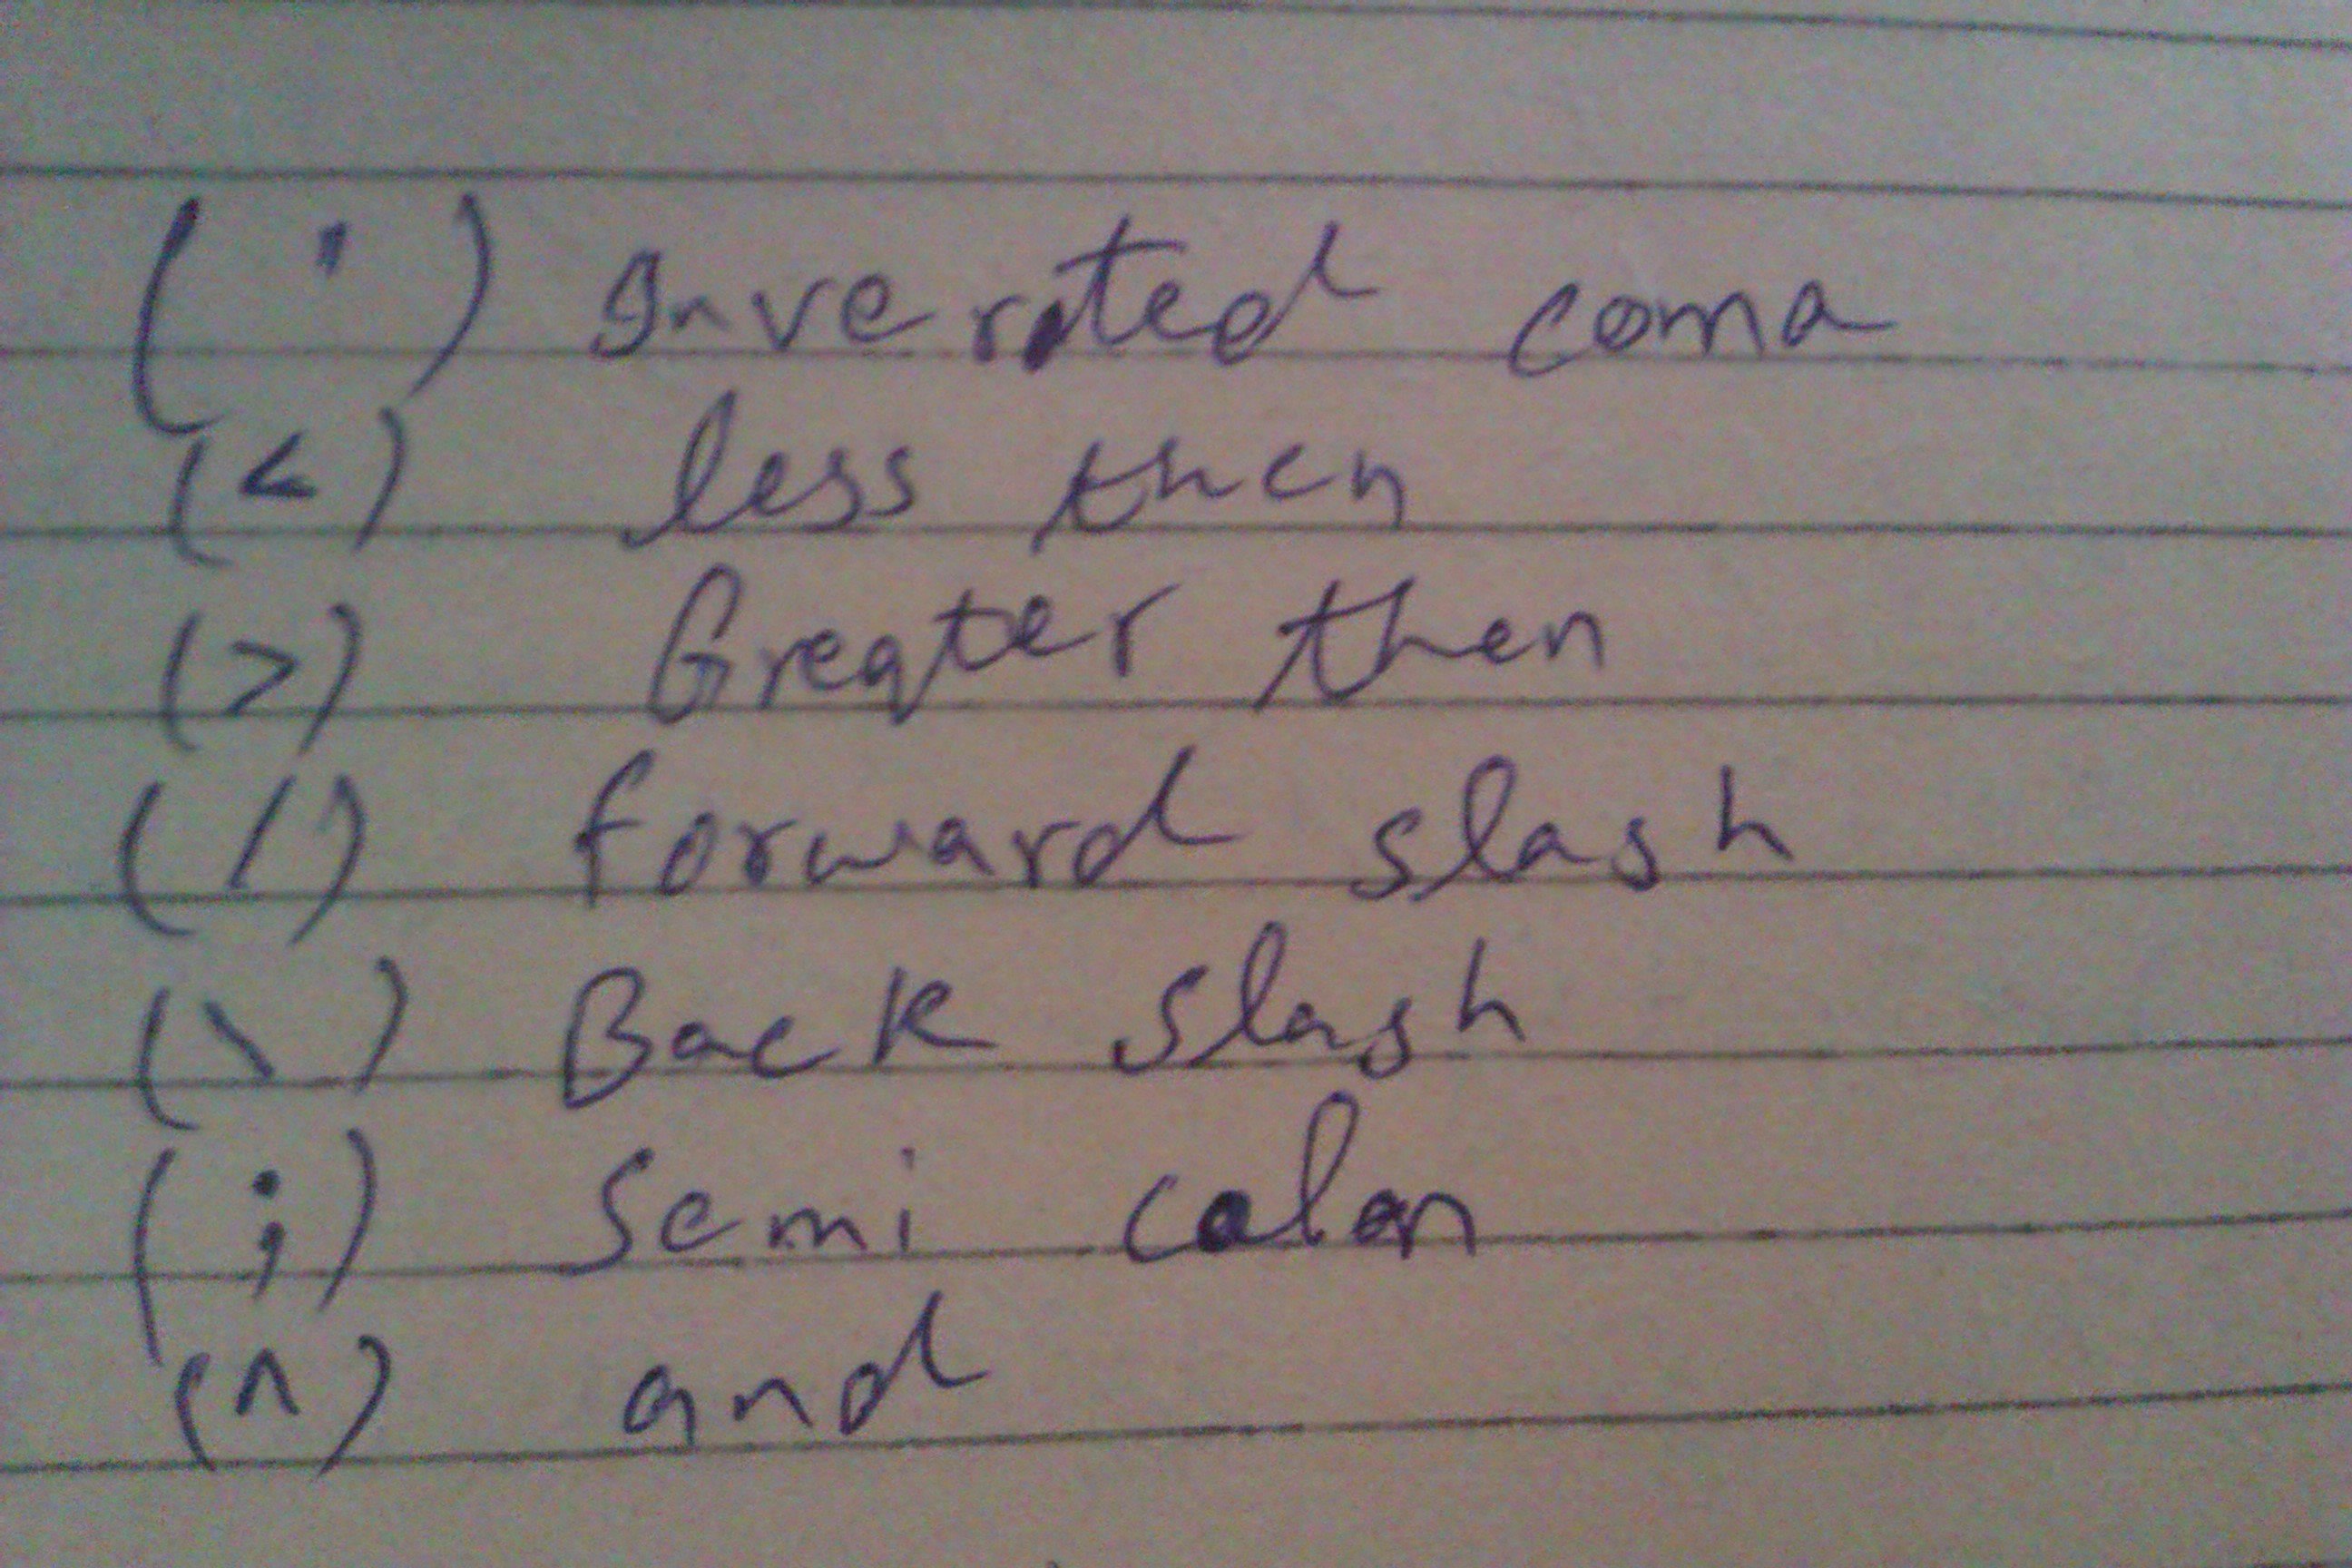 (') Inverated coma
(<) less then
(>) Greater then
(/) forward slash
(\) Back slash
(;) Semi colon
(^) and